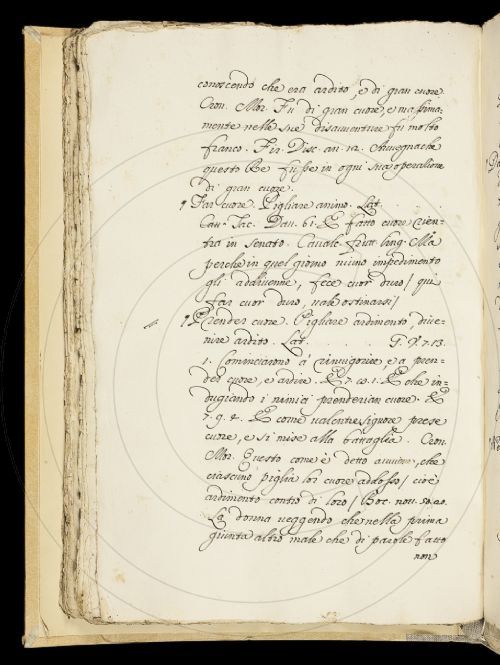 conoscendo che era ardito, e di gran cuore
Cron. Mor. Fu di gran cuore, e massima-
mente nelle sue disavventure fu molto
franco. Fir. Disc. an. 12. Avvegnache
questo Re fusse in ogni sua operazione
di gran cuore.
¶ Far cuore. Pigliare animo. Lat.
Cav. Tac. Dav. 61. E fatto cuore rien-
tra in senato. Cavalc. frutt. ling. Ma
perche in quel giorno niuno impedimento
gli addivenne, fece cuor duro/ qui
far cuor duro, vale ostinarsi/
¶ Prender cuore. Pigliare ardimento, dive-
nire ardito. Lat. G. V. 7. 13.
1. Cominciarono a rinvigorire, e a pren-
der cuore, e ardire. E 7. 101. 1. E che in-
dugiando i nimici prenderian cuore. E
7. 9. 4. E come valentre signore prese
cuore, e si mise alla battaglia. Cron.
Mor. Questo come è detto avviene, che
ciascuno piglia lor cuore addosso/ cioè
ardimento contro di loro/ Boc. nov.
La donna veggendo che nella prima
giunta altro male che di parole fatto
non